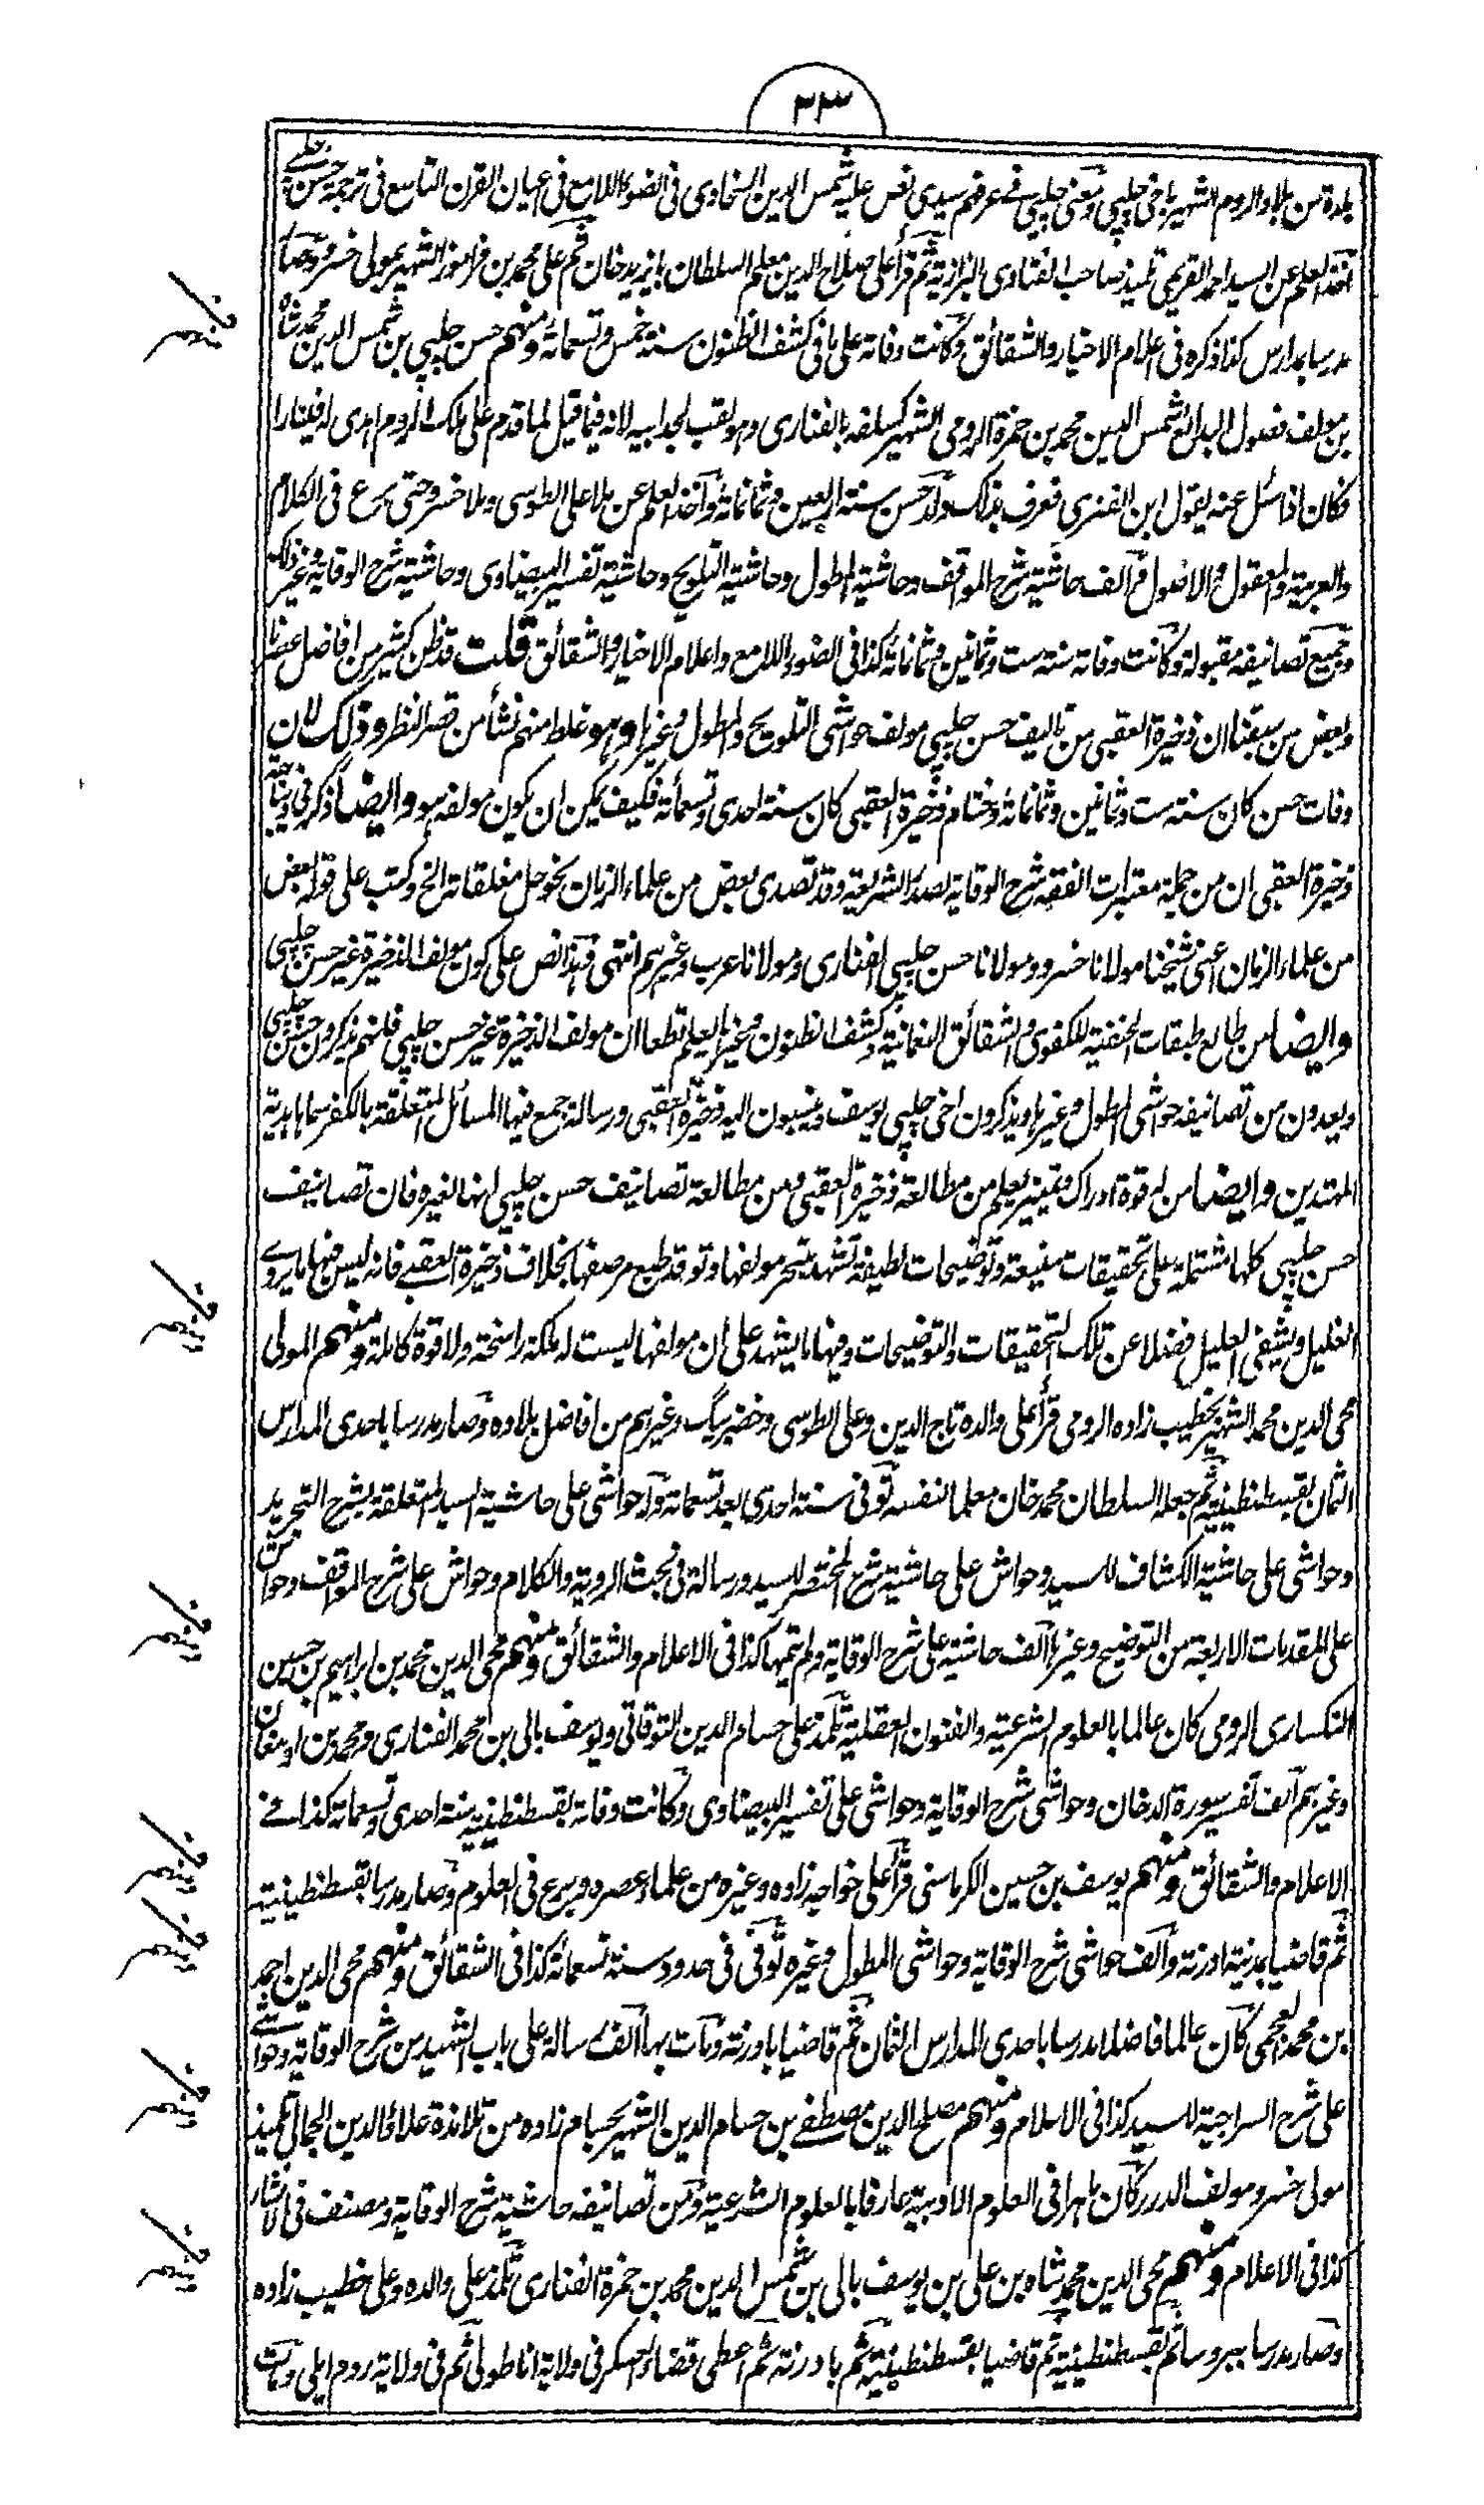 ٣٣
بلدة من بلاد الروم الشهير باخي چلپي ومعنى چلپي في عرفهم سيدي نص عليه شمس الدين السخاوي في الضوء اللامع في اعيان القرن التاسع في ترجمة حسن چلپي
اخذ العلم عن السيد احمد القريمي تلميذ صاحب الفتاوى البزازية ثم قرأ على صلاح الدين معلم السلطان بايزيد خان ثم على محمد بن فراموز الشهير بمولى خسرو وصار
مدرسا بمدارس كذا ذكره في اعلام الاخيار والشقائق وكانت وفاته على ما في كشف الظنون سنة خمس وتسعمائة ومنهم حسن چلپي بن شمس الدين محمد شاه
بن مولف فصول البدائع شمس الدين محمد بن حمزة الرومي الشهير كسلفه بالفناري وهو لقب لجد ابيه لانه فيما قيل لما قدم على ملك الروم اهدى له فينارا
فكان اذا سئل عنه يقول اين الفنري فعرف بذلك ولد حسن سنة اربعين وثمانمائة واخذ العلم عن ملا على الطوسي وملا خسرو حتى برع في الكلام
والعربية والمعقول والاصول والف حاشية شرح المواقف وحاشية المطول وحاشية التلويح وحاشية تفسير البيضاوي وحاشية شرح الوقاية وغير ذلك
وجميع تصانيفه مقبولة وكانت وفاته سنة ست وثمانين وثمانمائة كذا في الضوء اللامع واعلام الاخيار والشقائق قلت قد ظن كثير من افاضل عصرنا
وبعض من سبقنا ان ذخيرة العقبى من تاليف حسن چلپي مولف حواشي التلويح والمطول وغيرها وهو غلط منهم نشأ من قصر النظر وذلك لان
وفات حسن كان سنة ست وثمانين وثمانمائة وختام ذخيرة العقبى كان سنة احدى وتسعمائة فكيف يمكن ان يكون مولفه هو وايضا ذكر في ديباجة
ذخيرة العقبى ان من جملة معتبرات الفقه شرح الوقاية لصدر الشريعة وقد تصدى بعض من علماء الزمان نحو حل مغلقاته الخ وكتب على قوله بعض
من علماء الزمان اعني شيخنا مولانا خسرو ومولانا حسن چلپي الفناري ومولانا عرب وغيرهم انتهى فهذا نص على كون مولف الذخيرة غير حسن چلپي
وايضا من طالع طبقات الحنفية للكفوي والشقائق النعمانية وكشف الظنون وغيرها يعلم قطعا ان مولف الذخيرة غير حسن چلپي فانهم يذكرون حسن چلپي
ويعدون من تصانيفه حواشي المطول وغيرها ويذكرون اخي چلپي يوسف وينسبون اليه ذخيرة العقبى ورسالة جمع فيها المسائل المتعلقة بالكفر سماها هدية
المهتدين وايضا من له قوة ادراك وتمييز يعلم من مطالعة ذخيرة العقبى ومن مطالعة تصانيف حسن چلپي انها لغيره فان تصانيف
حسن چلپي كلها مشتملة على تحقيقات منيعة وتوضيحات لطيفة تشهد بتبحر مولفها وتوقد طبع مرصفها بخلاف ذخيرة العقبى فانه ليس فيها ما يروى
الغليل ويشفى العليل فضلا عن تلك التحقيقات والتوضيحات وفيها ما يشهد على ان مولفها ليست له ملكة راسخة ولا قوة كاملة ومنهم المولى
محي الدين محمد الشهير بخطيب زاده الرومي قرأ على والده تاج الدين وعلى الطوسي وخضر بيگ وغيرهم من افاضل بلاده وصار مدرسا باحدى المدارس
الثمان بقسطنطينية ثم جعله السلطان محمد خان معلما لنفسه توفى سنة احدى بعد تسعمائة وله حواشي على حاشية السيد المتعلقة بشرح التجريد
وحواشي على حاشية الكشاف للسيد وحواش على حاشية شرح المختصر للسيد ورسالة في بحث الروية والكلام وحواش على شرح المواقف وحواش
على المقدمات الاربعة من التوضيح وغيرها الف حاشية على شرح الوقاية ولم يتمها كذا في الاعلام والشقائق ومنهم محي الدين محمد بن ابراهيم بن حسين
النكساري الرومي كان عالما بالعلوم الشرعية والفنون العقلية تلمذ على حسام الدين التوقاتي ويوسف بالي بن محمد الفناري ومحمد بن اومغان
وغيرهم الف تفسير سورة الدخان وحواشي شرح الوقاية وحواشي على تفسير البيضاوي وكانت وفاته بقسطنطينية سنة احدى وتسعمائة كذا في
الاعلام والشقائق ومنهم يوسف بن حسين الكرماسني قرأ على خواجه زاده وغيره من علماء عصره وبرع في العلوم وصار مدرسا بقسطنطينية
ثم قاضيا بمدينة ادرنة والف حواشي شرح الوقاية وحواشي المطول وغيره توفى في حدود سنة تسعمائة كذا في الشقائق ومنهم محي الدين احمد
بن محمد العجمي كان عالما فاضلا مدرسا باحدى المدارس الثمان ثم قاضيا بادرنة ومات بها الف رسالة على باب الشهيد من شرح الوقاية وحواشي
على شرح السراجية للسيد كذا في الاعلام ومنهم مصلح الدين مصطفى بن حسام الدين الشهير بحسام زاده من تلامذة علاء الدين الجمالي تلميذ
مولى خسرو مولف الدرر كان ماهرا في العلوم الادبية عارفا بالعلوم الشرعية ومن تصانيفه حاشية شرح الوقاية ومصنف في الانشاء
كذا في الاعلام ومنهم محي الدين محمد شاه بن على بن يوسف بالي بن شمس الدين محمد بن حمزة الفناري تلمذ على والده وعلى خطيب زاده
وصار مدرسا ببروسا ثم بقسطنطينية ثم قاضيا بقسطنطينية ثم بادرنة ثم اعطى قضاء العسكر في ولاية اناطولي ثم في ولاية روم ايلي ومات